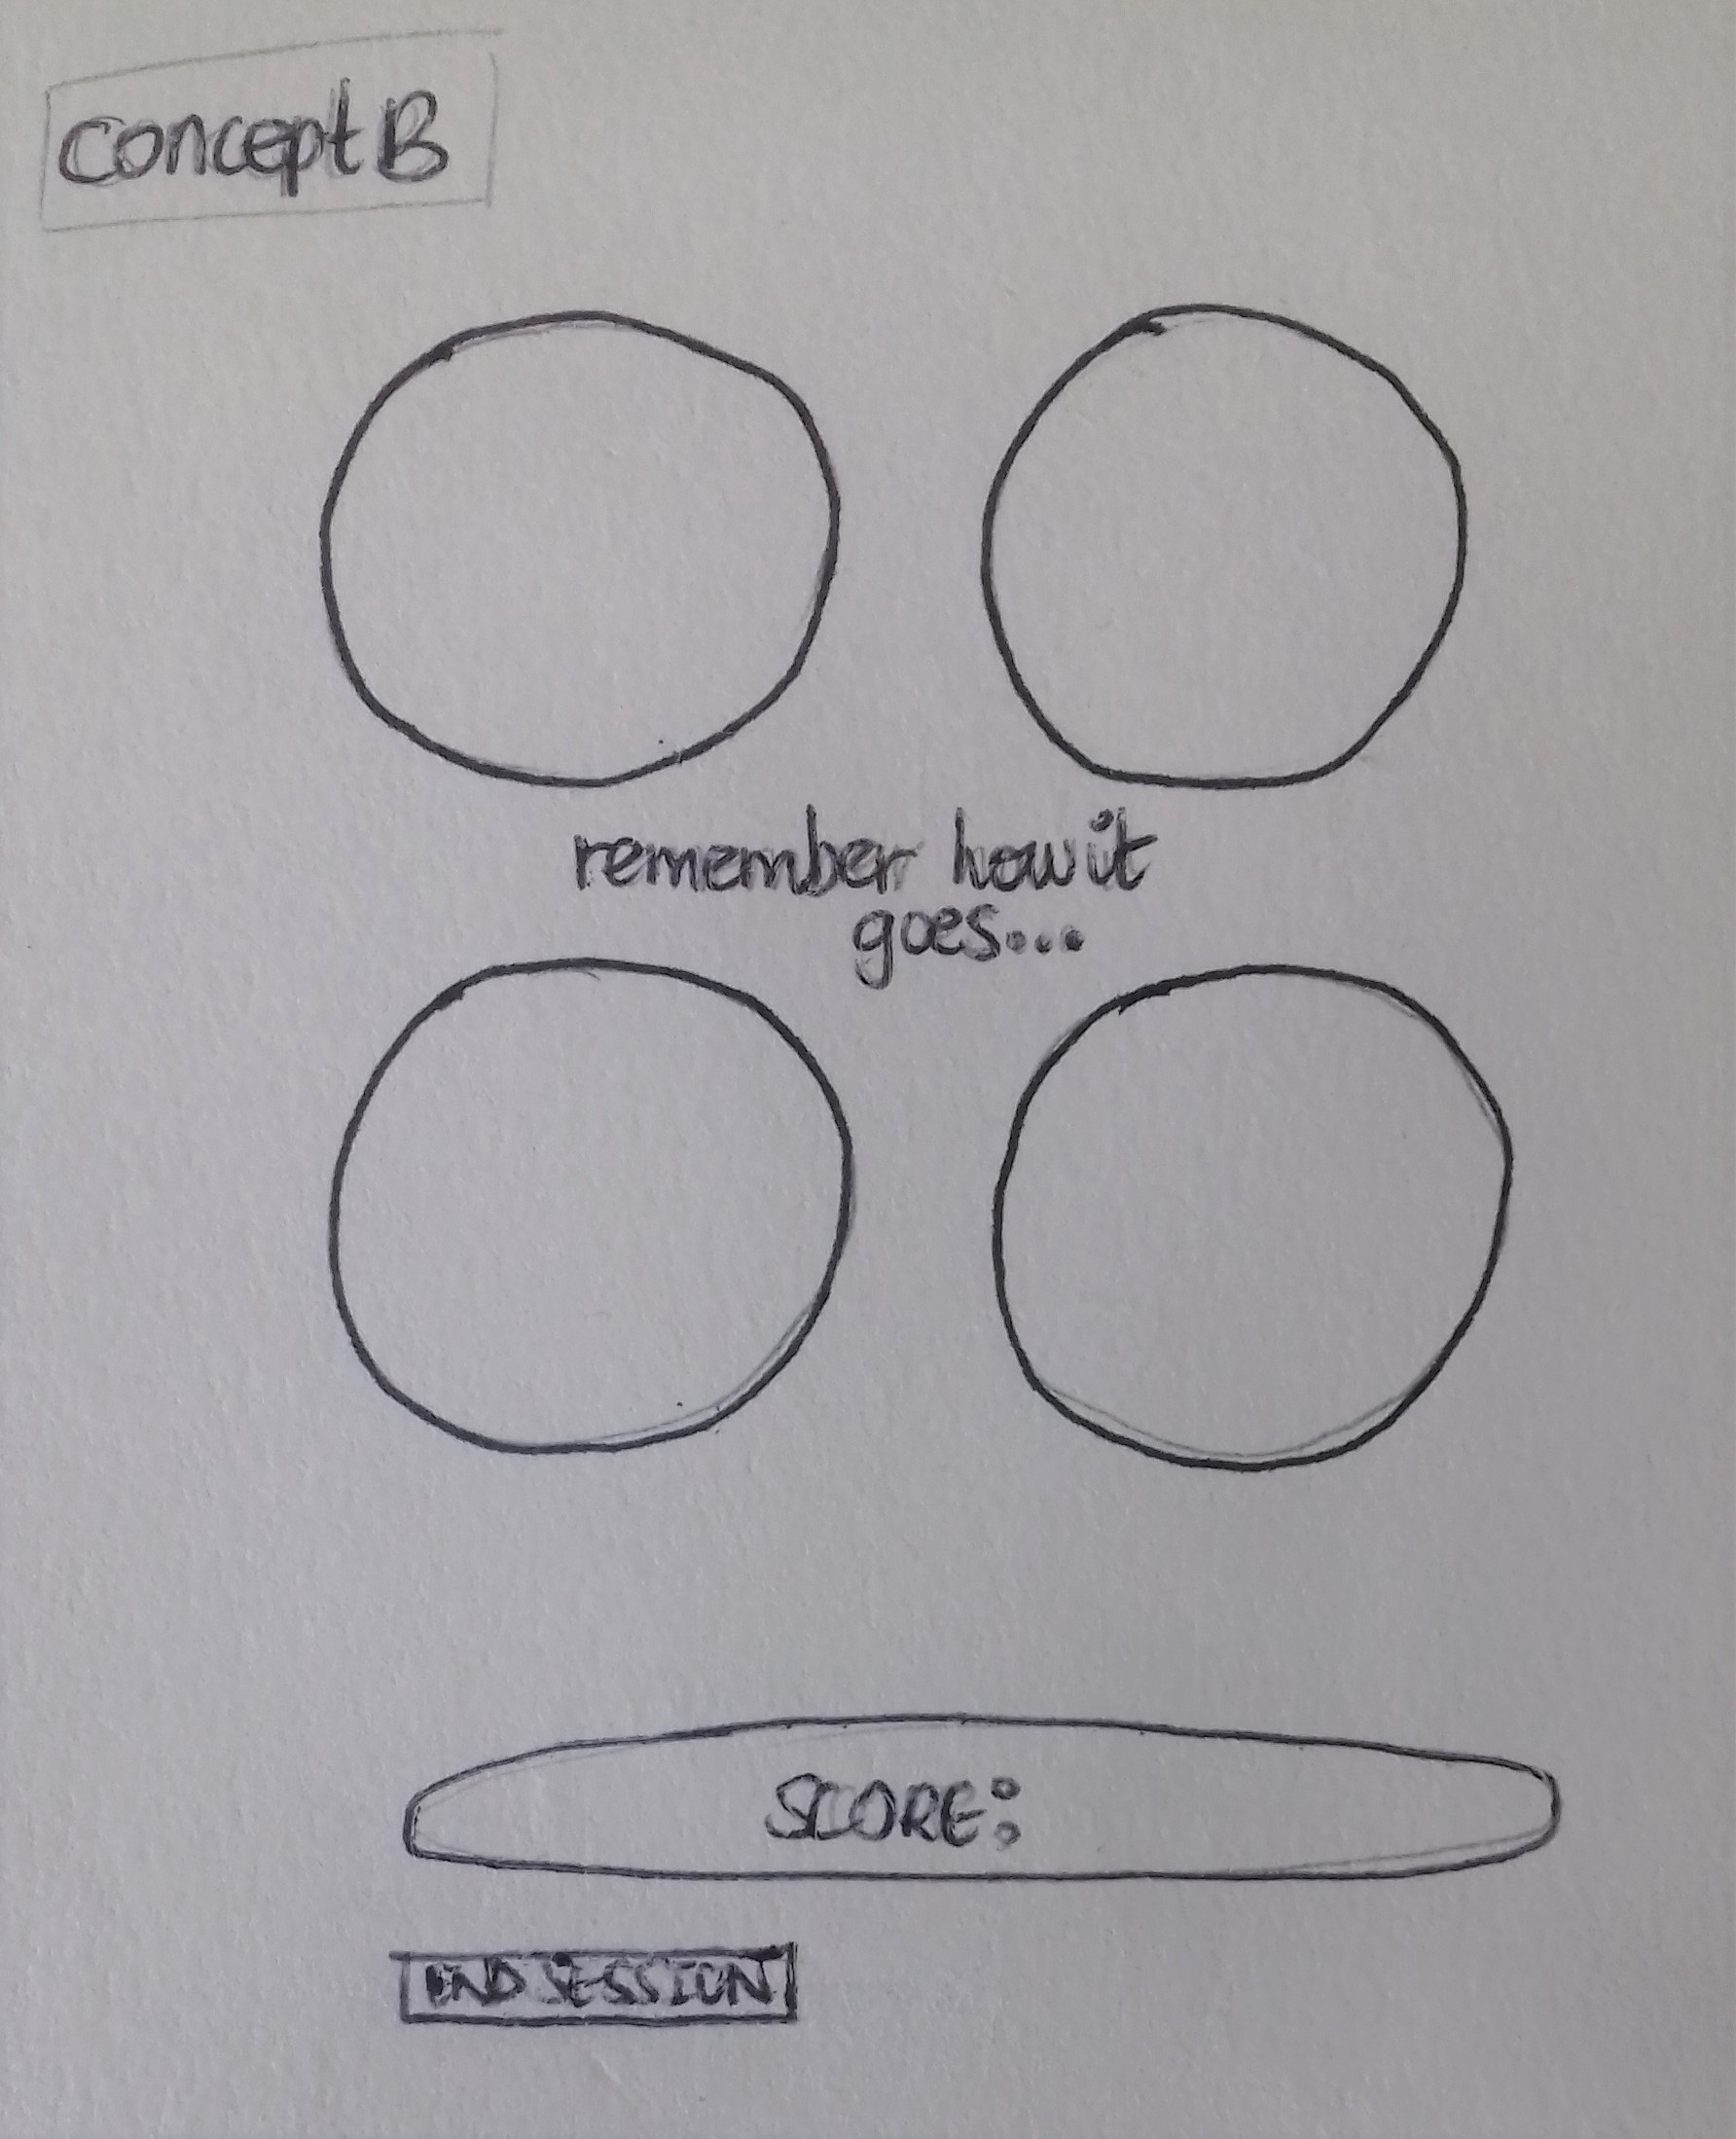 concept B
remember how it
goes...
SCORE:
END SESSION